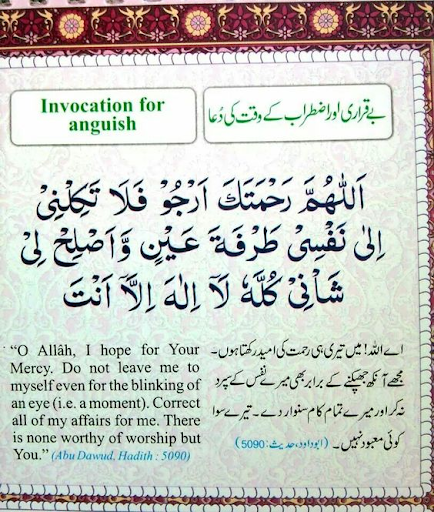 Invocation for
anguish
بے قراری اور اضطراب کے وقت کی دُعا
اَللّٰهُمَّ رَحْمَتَكَ اَرْجُوْ فَلَا تَكِلْنِیْ
اِلٰی نَفْسِیْ طَرْفَةَ عَیْنٍ وَّاَصْلِحْ لِیْ
شَاْنِیْ كُلَّهٗ لَآ اِلٰهَ اِلَّآ اَنْتَ
“O Allâh, I hope for Your
Mercy. Do not leave me to
myself even for the blinking of
an eye (i.e. a moment). Correct
all of my affairs for me. There
is none worthy of worship but
You.” (Abu Dawud, Hadith : 5090)
اے اللہ! میں تیری ہی رحمت کی امید رکھتا ہوں۔
مجھے آنکھ جھپکنے کے برابر بھی میرے نفس کے سپرد
نہ کر اور میرے تمام کام سنوار دے۔ تیرے سوا
کوئی معبود نہیں۔ (ابوداود، حدیث: 5090)